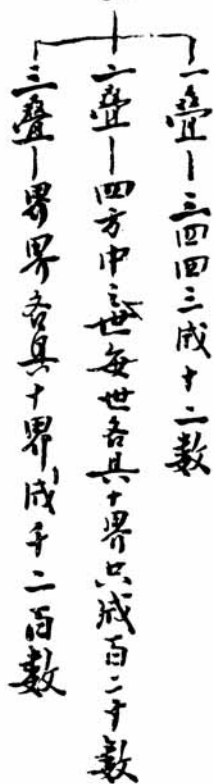 一疊－三四四三成十二數
二疊－四方中三世每世各具十界共成百二十數
三疊－界界各具十界成千二百數